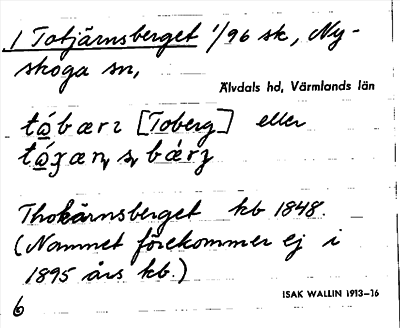 1 Totjärnsberget 1/96 sk, Ny-
skoga sn,
Älvdals hd, Värmlands län
[Toberg] eller
Thokärnsberget kb 1848.
(Namnet förekommer ej i
1895 års kb.)
ISAK WALLIN 1913-16
6